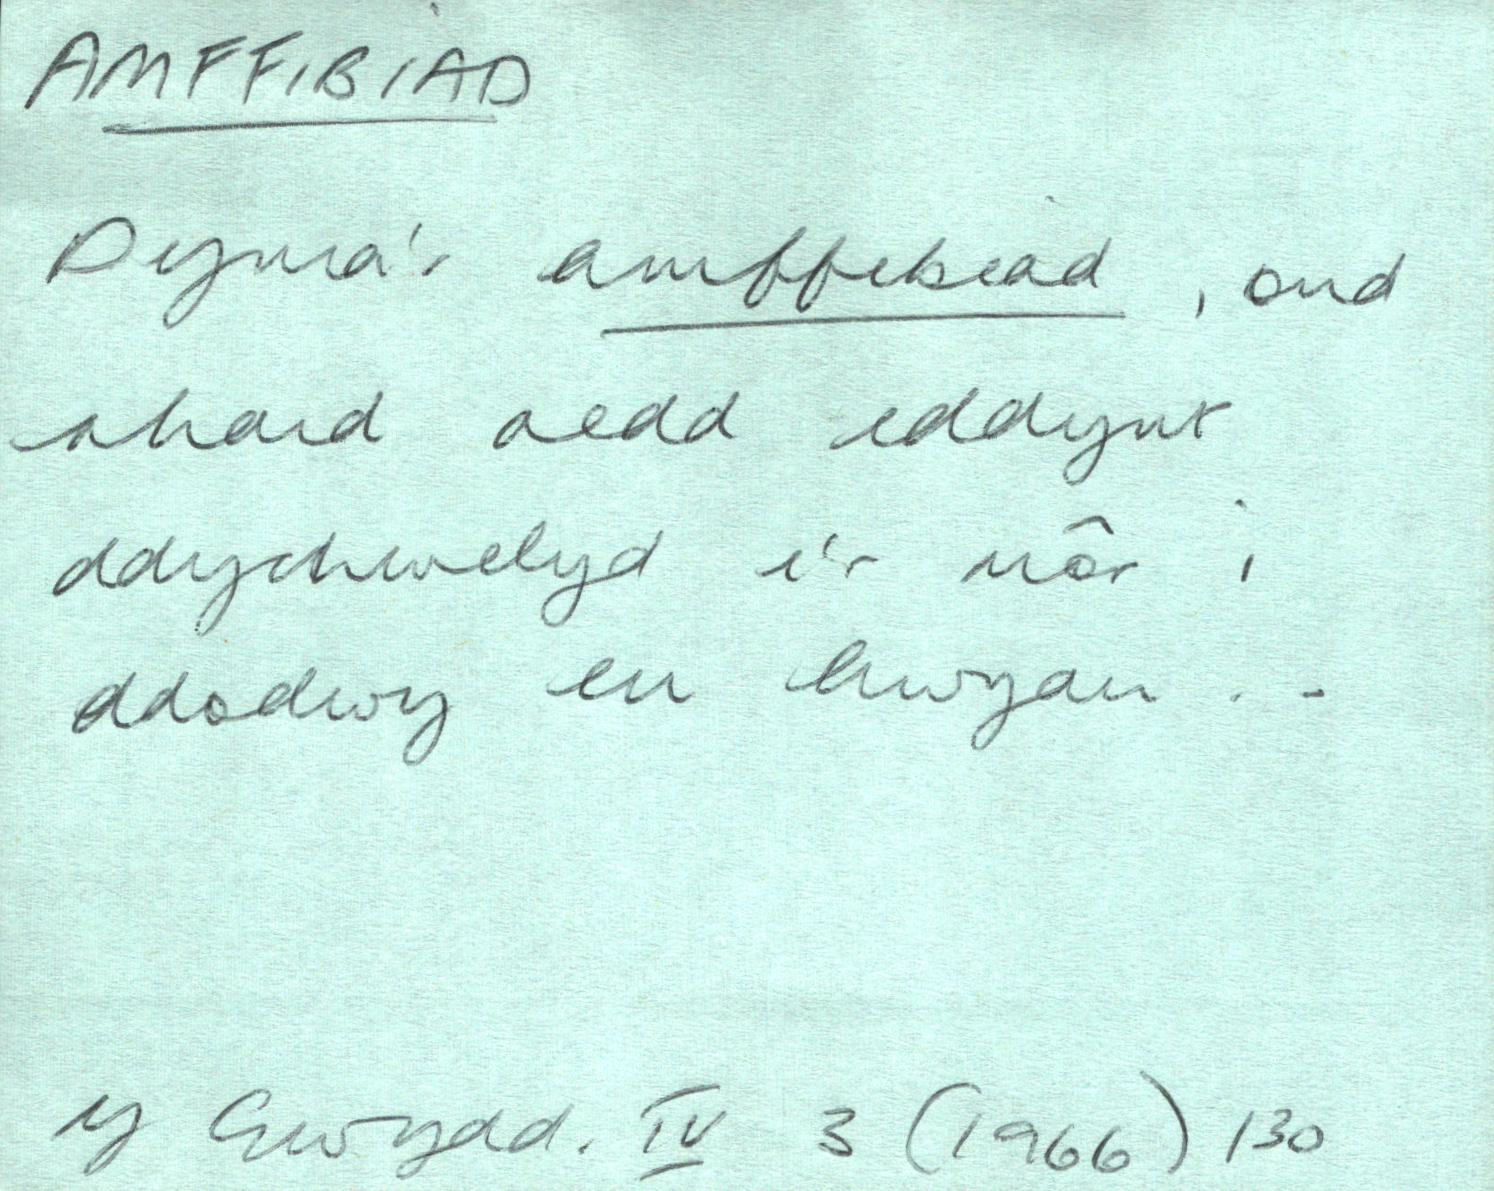 AMFFIBIAD
Dyma'r amffibiad, ond
rhaid oedd iddynt
ddychwelyd i'r môr i
ddodwy eu hwyau . .
Y Gwydd. IV 3 (1966) 130